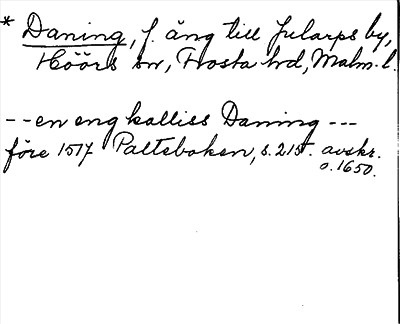 * Daning, f. äng till Jularps by,
Höörs sn, Frosta hd, Malm. l.
-- en eng kalliss Daning ---
före 1517 Palteboken, s. 215. avskr.
o. 1650.